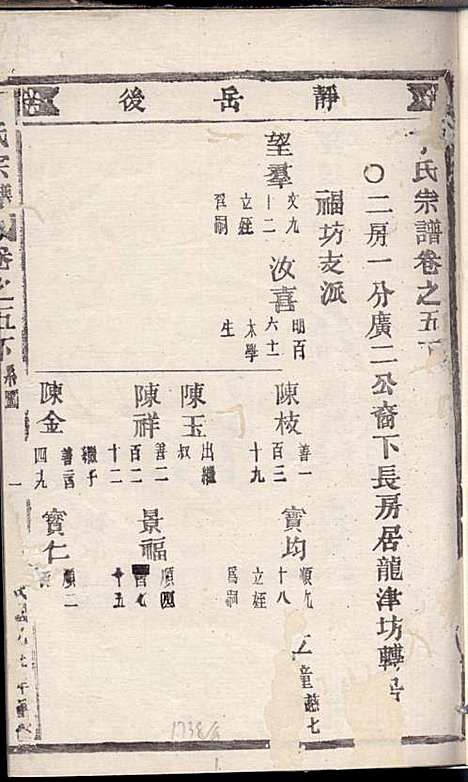 靜岳後
氏宗譜卷之五下
〇二房一分廣二公裔下長房居龍津坊轉居
福坊支派
望羣
文九
十二
立姪
爲嗣
汝喜
明百
六十一
太學
生
陳枝
善一
百三
十九
寶均
順九
十八
立姪
爲嗣
童
慈七
陳玉
出繼
叔
陳祥
善二
百二
十二
景福
順四
百七
十五
陳金
繼子
善二百
四九
寶仁
順二
氏宗譜卷之五下
系圖
一